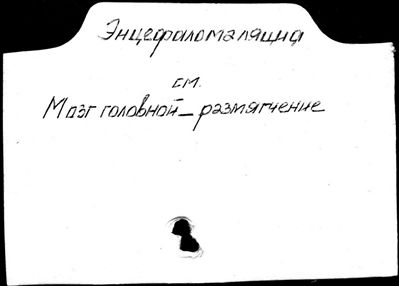 Энцефаломаляция
см.
Мозг головной - размягчение